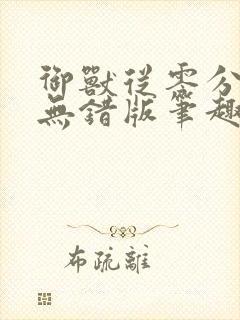 御獸從零分
無錯版筆趣
布疏離